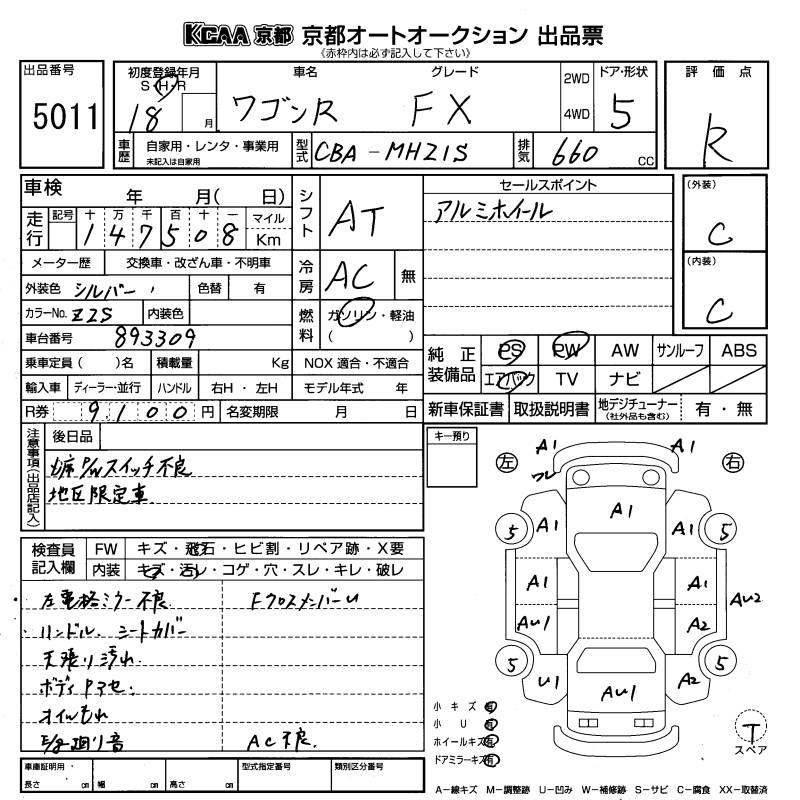 KCAA 京都 京都オートオークション 出品票
(赤枠内は必ず記入して下さい)
出品番号
5011
初度登録年月
S・H・R
18 月
車名 グレード
ワゴンR FX
2WD
4WD
ドア・形状
5
評価点
R
車歴
自家用・レンタ・事業用
未記入は自家用
型式
CBA-MH21S
排気
660 CC
車検 年 月( 日)
走行
記号 十 万 千 百 十 一 マイル
147508 Km
シフト
AT
メーター歴 交換車・改ざん車・不明車
冷房
AC 無
外装色 シルバー 色替 有
カラーNo. Z2S 内装色
燃料
ガソリン・軽油
( )
車台番号 893309
乗車定員( )名 積載量 Kg NOX 適合・不適合
輸入車 ディーラー・並行 ハンドル 右H・左H モデル年式 年
R券 9100 円 名変期限 月 日
セールスポイント
アルミホイール
(外装)
C
(内装)
C
純正装備品
PS PW AW サンルーフ ABS
エアバック TV ナビ
新車保証書 取扱説明書 地デジチューナー (社外品も含む) 有・無
注意事項(出品店記入)
後日品
P/Wスイッチ不良
地区限定車
キー預り
検査員記入欄
FW キズ・飛石・ヒビ割・リペア跡・X要
内装 キズ・汚レ・コゲ・穴・スレ・キレ・破レ
左電格ミラー不良 FクロスメンバーU
ハンドル、シートカバー
天張り汚れ
ボディ
オイルもれ
廻り音 AC不良.
左 右
A1 A1
A1
5 A1 A1 5
A1 A1
AU2
AU1 A2
5 5
U1 AU1 A2
小キズ 有
小U 有
ホイールキズ 有
ドアミラーキズ 有
T
スペア
車庫証明用・
長さ cm 幅 cm 高さ cm
型式指定番号 類別区分番号
A−線キズ M−調整跡 U−凹み W−補修跡 S−サビ C−腐食 XX−取替済